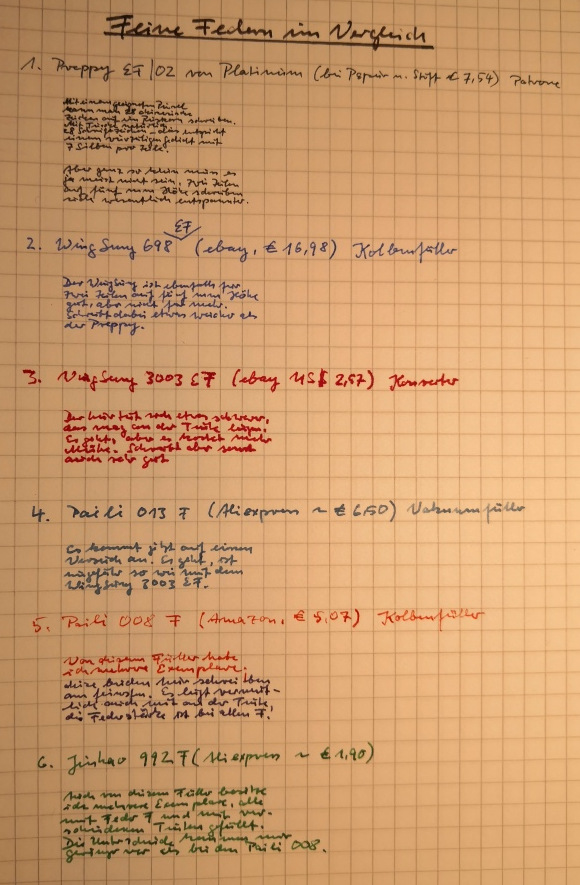 Feine Federn im Vergleich
1. Preppy EF/02 von Platinum (bei Papier u. Stift € 7,54) Patrone
Mit einem geeigneten Pinsel
kann man 28 chinesische
Zeichen auf ein Reiskorn schreiben.
28 Schriftzeichen - das entspricht
einem vierzeiligen Gedicht mit
7 Silben pro Zeile.
Aber ganz so klein muss es
ja meist nicht sein. Zwei Zeilen
auf fünf mm Höhe schreiben
wesentlich entspannter.
EF
2. WingSung 698 (ebay, € 16,98) Kolbenfüller
Der WingSung ist ebenfalls für
zwei Zeilen auf fünf mm Höhe
gut, aber nicht für mehr.
Schreibt dabei etwas weicher als
der Preppy.
3. WingSung 3003 EF (ebay US$ 2,57) Konverter
Der hier tut sich etwas schwerer,
das mag an der Tinte liegen.
Es geht, aber es kostet mehr
Mühe. Schreibt aber sonst
auch sehr gut
4. Paili 013 F (Aliexpress ~ € 6,50) Vakuumfüller
Es kommt jetzt auf einen
Versuch an. Es geht, ist
ungefähr so wie mit dem
WingSung 3003 EF.
5. Paili 008 F (Amazon, € 5,07) Kolbenfüller
Von diesem Füller habe
ich mehrere Exemplare.
diese beiden hier schreiben
am feinsten. Es liegt vermut-
lich auch mit an der Tinte,
die Federstärke ist bei allen F.
6. Jinhao 992 F (Aliexpress ~ € 1,90)
Auch von diesem Füller besitze
ich mehrere Exemplare, alle
mit Feder F und mit ver-
schiedenen Tinten gefüllt.
Die Unterschiede kommen mir
geringer vor als bei den Paili 008.